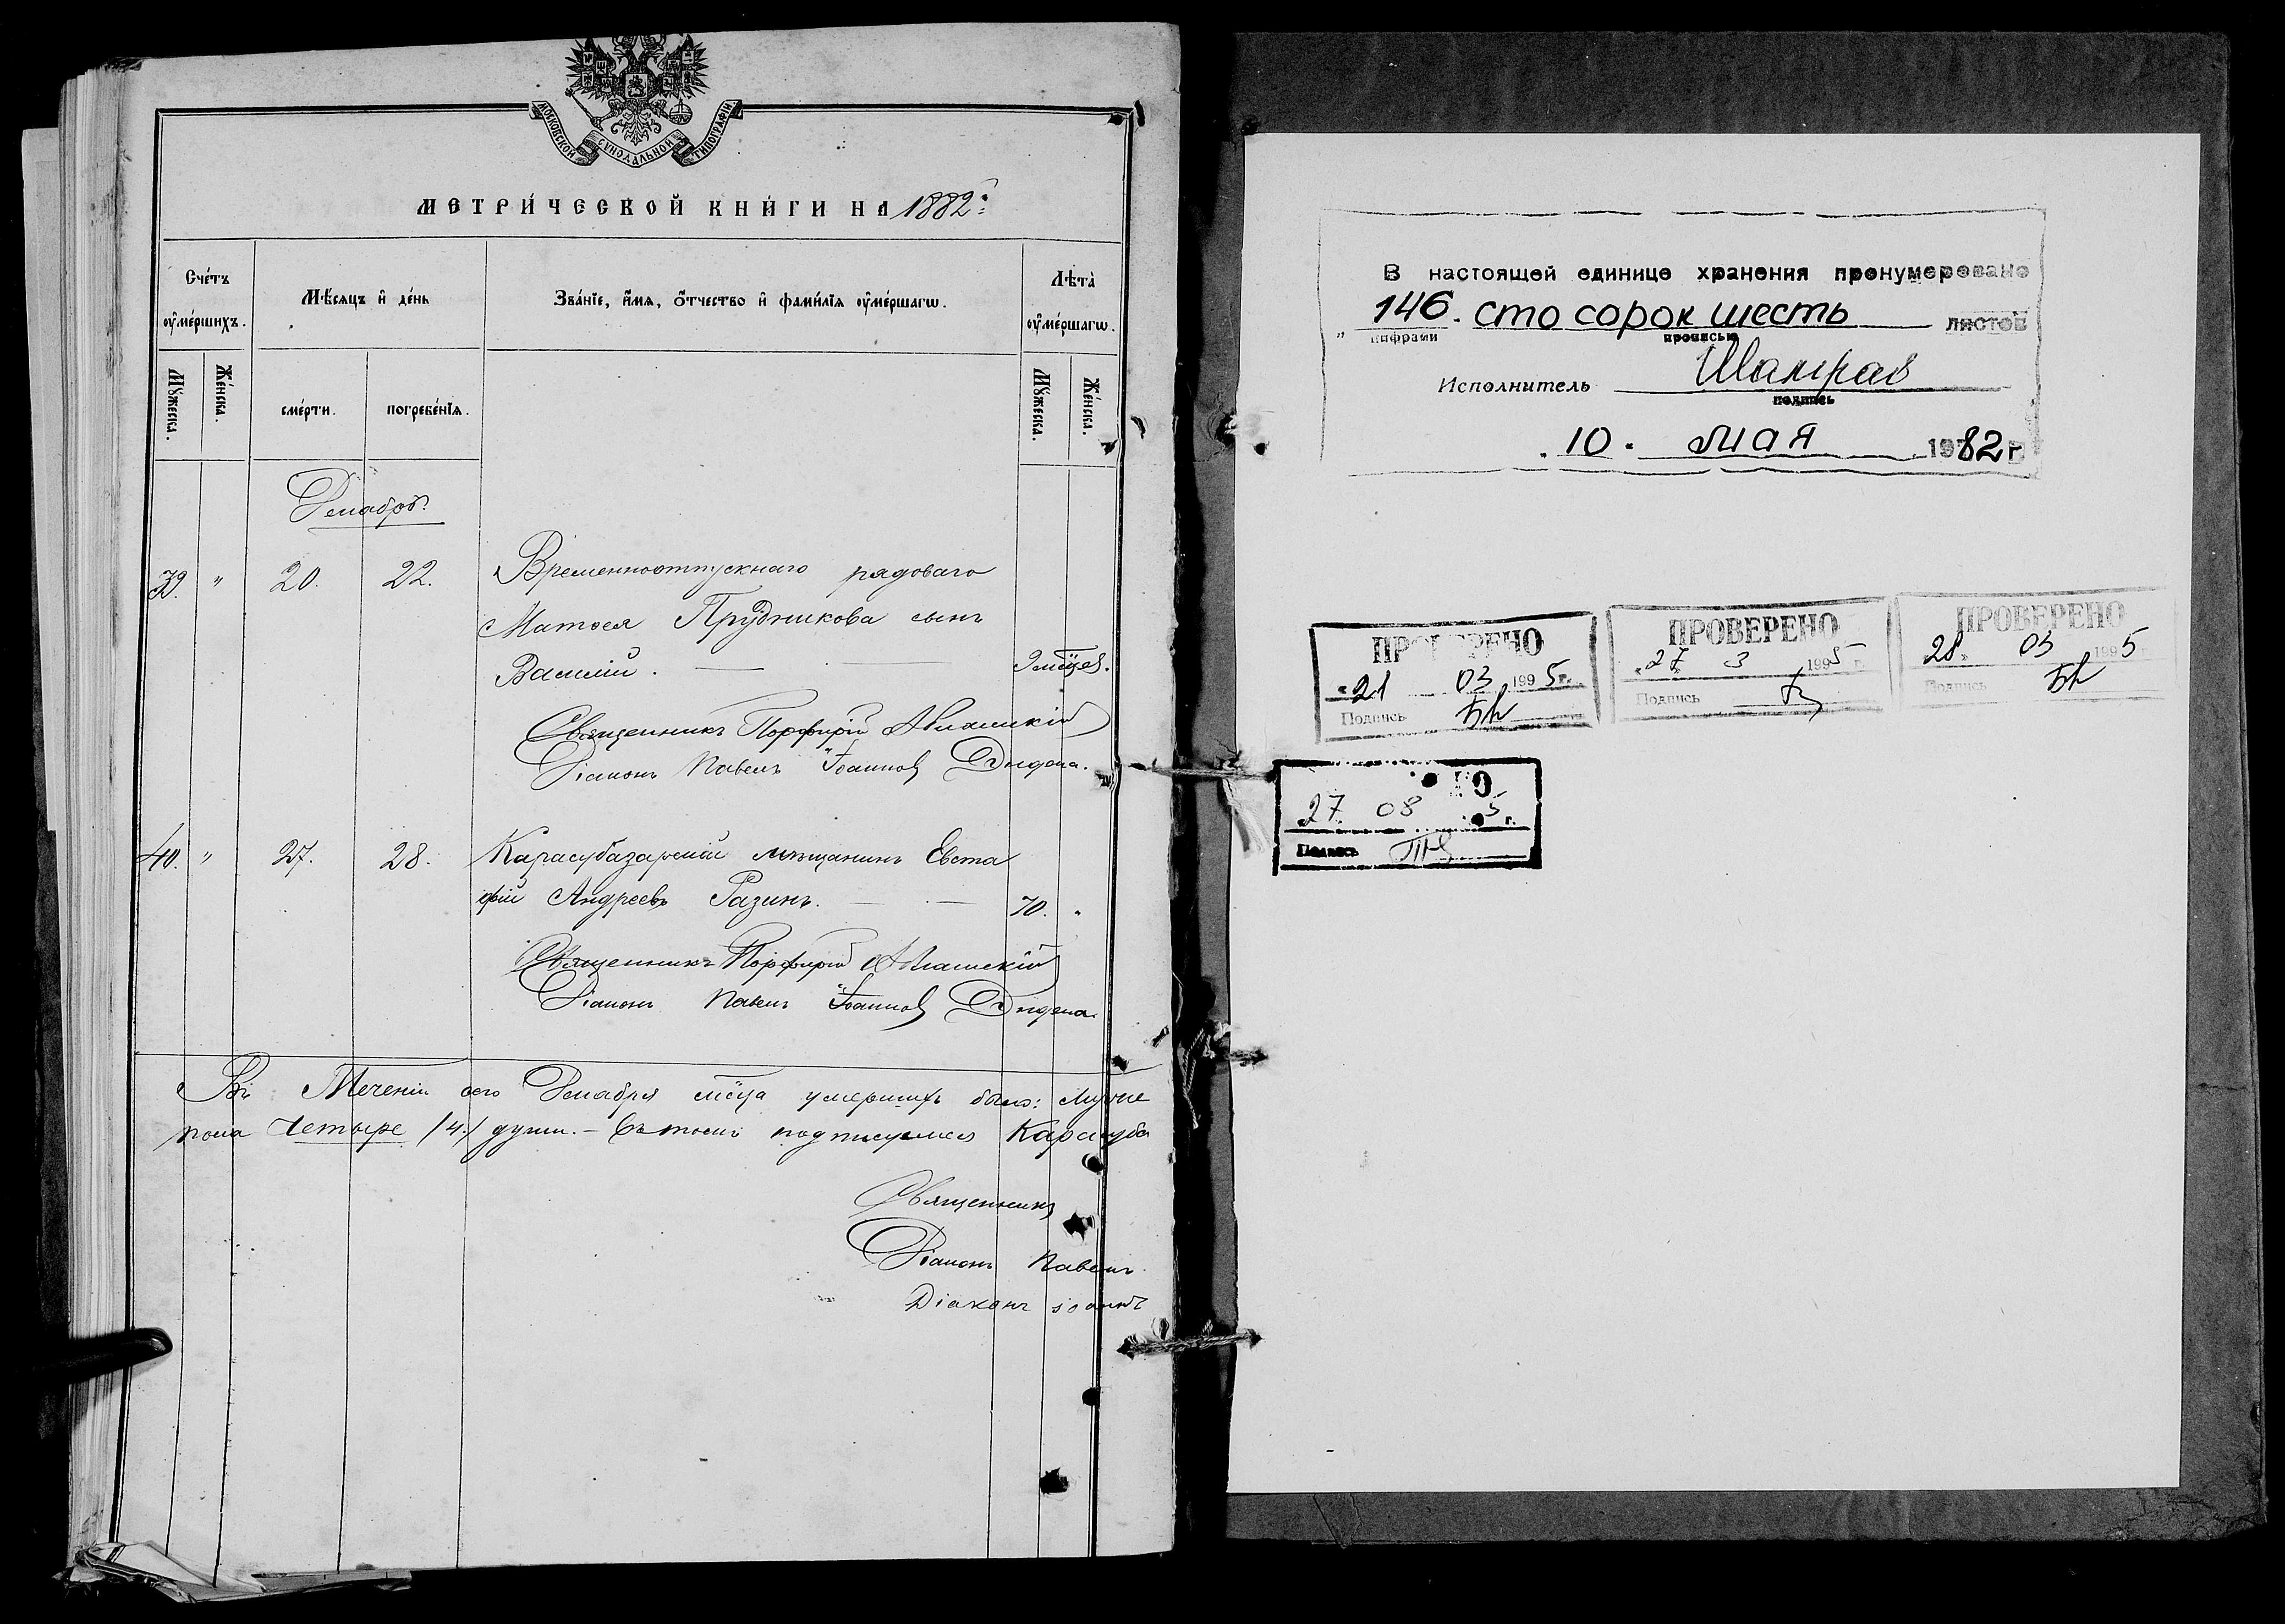 МОСКОВСКОЙ СУНОДАЛЬНОЙ ТИПОГРАФІИ
МЕТРИ́ЧЕСКОЙ КНИ́ГИ НА 1882 г.
Сче́тъ ᲂу҆ме́ршихъ.
Мѣ́сяцъ и҆ де́нь
Зва́нїе, и҆́мя, ѻ҆́тчество и҆ фами́лїя ᲂу҆ме́ршагѡ.
Лѣ́та ᲂу҆ме́ршагѡ.
Мꙋ́жеска.
Же́нска.
сме́рти.
погребе́нїя.
Мꙋ́жеска.
Же́нска.
Декабрь.
39. " 20. 22. Временноотпускнаго рядоваго
Матѳея Прудникова сынъ
Василій. 9 мцев.
Священникъ Порфирій
Діаконъ Павелъ Іоанновъ
40. " 27. 28. Карасубазарскій мѣщанинъ Евста
фій Андреевъ Разинъ. 70. "
Священникъ Порфирій
Діаконъ Павелъ Іоанновъ
Въ теченіи сего Декабря мсца умершихъ было: мужска
пола Четыре /4/ души. – Въ томъ подписуемся Карасуба
Священникъ
Діаконъ Павелъ
Діаконъ Іоаннъ
В настоящей единице хранения пронумеровано
" 146. сто сорок шесть листов
цифрами прописью
Исполнитель
подпись
10. мая 1982 г.
ПРОВЕРЕНО
"21 03 1995 г.
Подпись
ПРОВЕРЕНО
"27" 3 1995 г.
Подпись
ПРОВЕРЕНО
28" 03 1995 г.
Подпись
27 08 5 г.
Подпись